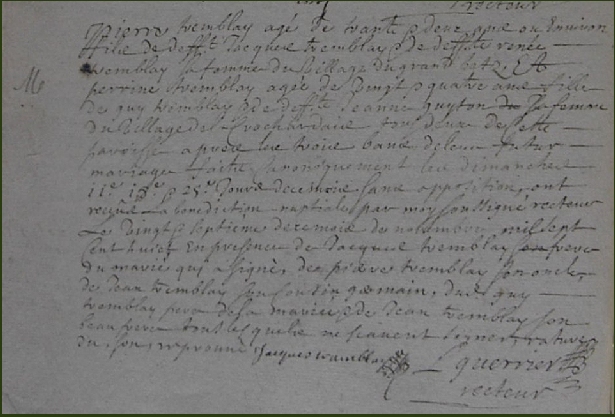 recteur
M
Pierre tremblay agé de trante & deux ans ou Environ
fils de defft Jacques tremblay & de deffte renée
tremblay sa femme du village du grand betz. Et
perrine tremblay agée de vingt & quatre ans fille
de guy tremblay & de deffte Jeanne guyton sa femme
du village de la Crochardaie tous deux de cette
paroisse apres les trois bans de leur futur
mariage faits canoniquement les dimanches
11e 18e & 25e Jours de ce mois sans opposition, ont
reçeu la benediction nuptiale par moy soussigné recteur
Le vingt & septieme de ce mois de novembre mil sept
cent huict En presence de Jacques tremblay frere
du marié qui a signé, de pierre tremblay son oncle,
de Jean tremblay son cousin germain, dudt guy
tremblay pere de la mariée, & de Jean tremblay son
beau frere tous lesquels ne scavent signer rature
du son, reprouvé Jacques tramblay
guerrier
recteur